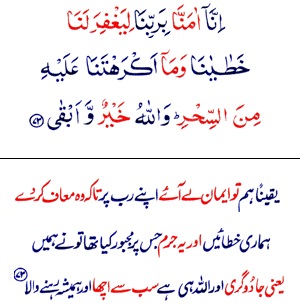 اِنَّاۤ اٰمَنَّا بِرَبِّنَا لِيَغْفِرَ لَنَا
خَطٰيٰنَا وَمَاۤ اَكْرَهْتَنَا عَلَيْهِ
مِنَ السِّحْرِ ؕ وَاللّٰهُ خَيْرٌ وَّ اَبْقٰى ﴿۷۳﴾
یقیناً ہم تو ایمان لے آئے اپنے رب پر تاکہ وہ معاف کر دے
ہماری خطائیں اور یہ جرم جس پر مجبور کیا تھا تو نے ہمیں
یعنی جادوگری اور اللہ ہی ہے سب سے اچھا اور ہمیشہ رہنے والا ﴿۷۳﴾